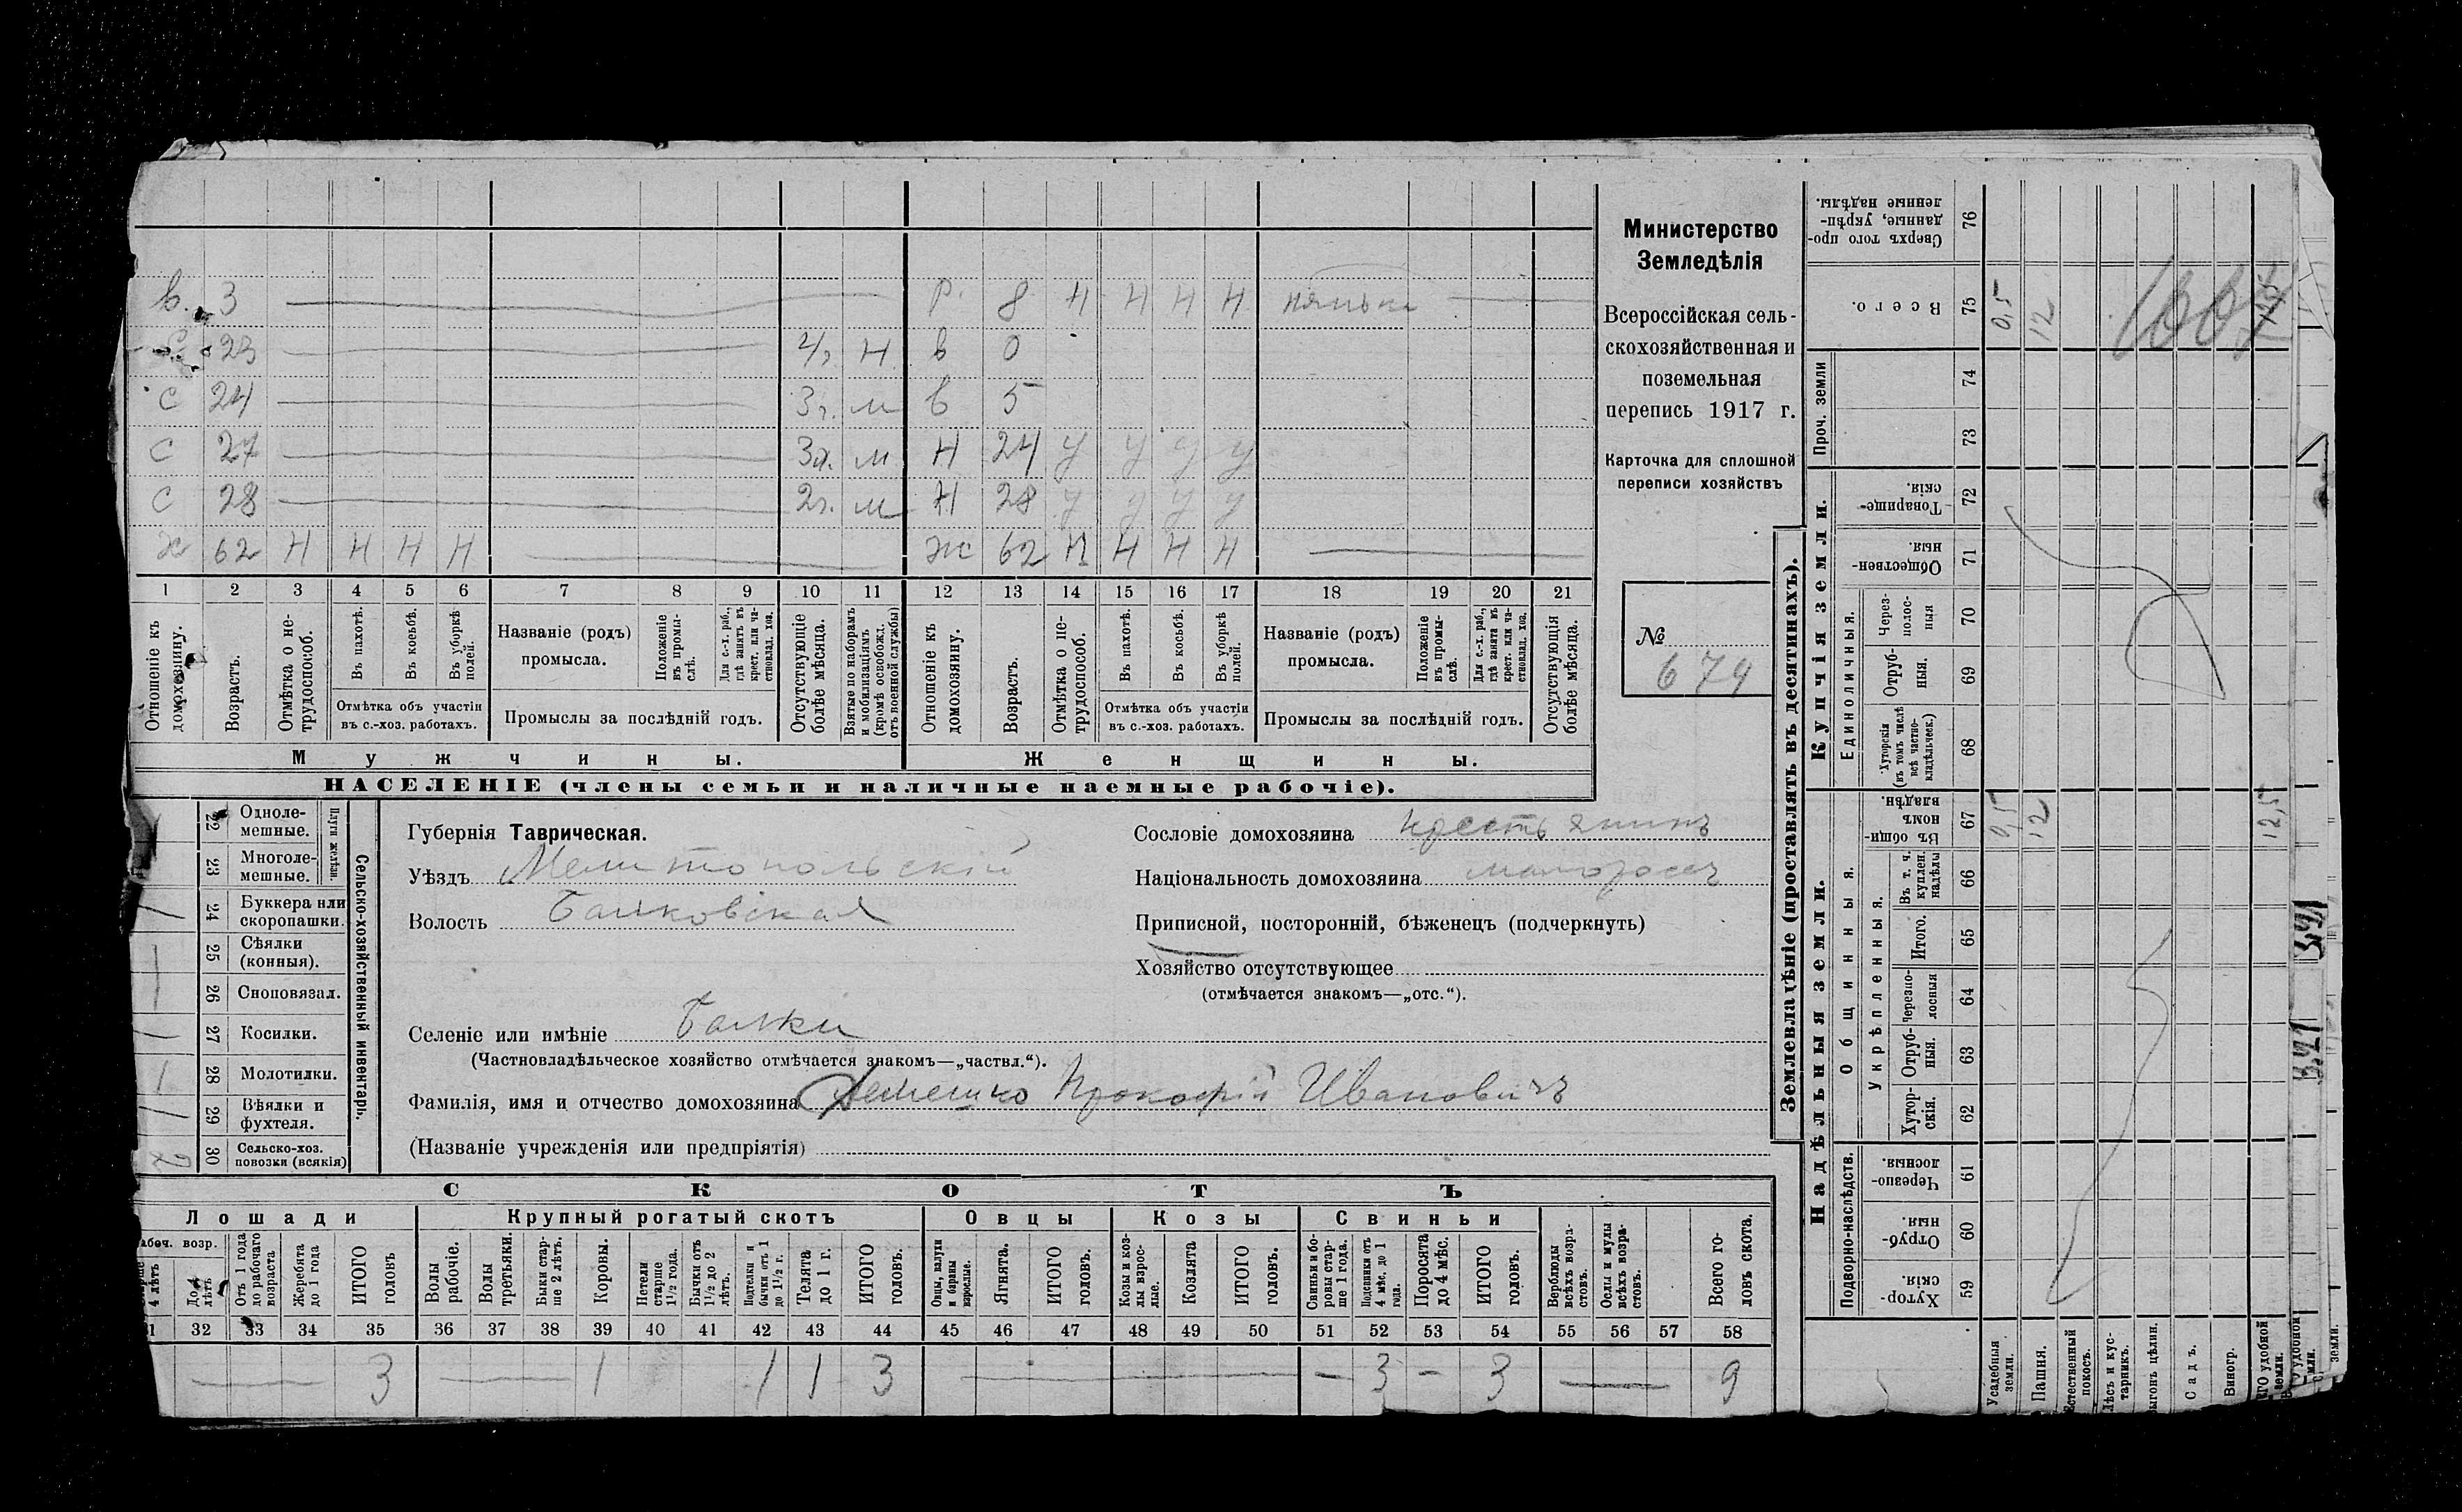 в. 3 р. 8 Н Н Н Н нянька
с 23 4г. Н в 0
с 24 3г. м в 5
с 27 3г. м Н 24 у у у у
с 28 2г. м Н 28 у у у у
х 62 Н Н Н Н Ж 62 Н Н Н Н
1 2 3 4 5 6 7 8 9 10 11 12 13 14 15 16 17 18 19 20 21
Отношеніе къ домохозяину.
Возрастъ.
Отмѣтка о нетрудоспособ.
Въ пахотѣ.
Въ косьбѣ.
Въ уборкѣ полей.
Отмѣтка объ участіи
въ с.-хоз. работахъ.
Названіе (родъ)
промысла.
Положеніе въ промыслѣ.
Для с.-х. раб., гдѣ занятъ въ крест. или частновлад. хоз.
Промыслы за послѣдній годъ.
Отсутствующіе болѣе мѣсяца.
Взятые по наборамъ и мобилизаціямъ (кромѣ освобожд. отъ военной службы)
Отношеніе къ домохозяину.
Возрастъ.
Отмѣтка о нетрудоспособ.
Въ пахотѣ.
Въ косьбѣ.
Въ уборкѣ полей.
Отмѣтка объ участіи
въ с.-хоз. работахъ.
Названіе (родъ)
промысла.
Положеніе въ промыслѣ.
Для с.-х. раб., гдѣ занята въ крест. или частновлад. хоз.
Промыслы за послѣдній годъ.
Отсутствующія болѣе мѣсяца.
Мужчины. Женщины.
НАСЕЛЕНІЕ (члены семьи и наличные наемные рабочіе).
Министерство
Земледѣлія
Всероссійская сель-
скохозяйственная и
поземельная
перепись 1917 г.
Карточка для сплошной
переписи хозяйствъ
№
674
Сельско-хозяйственный инвентарь.
Плуги желѣзн.
22 Одноле-
мешные.
23 Многоле-
мешные.
1 24 Буккера или
скоропашки.
1 25 Сѣялки
(конныя).
26 Сноповязал.
1 27 Косилки.
1 28 Молотилки.
1 29 Вѣялки и
фухтеля.
2 30 Сельско-хоз.
повозки (всякія)
Губернія Таврическая.
Уѣздъ Мелитопольскій
Волость Балковская
Селеніе или имѣніе Балки
(Частновладѣльческое хозяйство отмѣчается знакомъ—„частвл.“).
Фамилія, имя и отчество домохозяина Демешко Прокофій Ивановичъ
(Названіе учрежденія или предпріятія)
Сословіе домохозяина крестьянинъ
Національность домохозяина малороссъ
Приписной, посторонній, бѣженецъ (подчеркнуть)
Хозяйство отсутствующее
(отмѣчается знакомъ—„отс.“).
СКОТЪ
Лошади Крупный рогатый скотъ Овцы Козы Свиньи
До 4 лѣтъ
Отъ 1 года до рабочаго возраста
Жеребята до 1 года
ИТОГО головъ
Волы рабочіе.
Волы третьяки.
Быки старше 2 лѣтъ.
Коровы.
Нетели старше 1½ года.
Бычки отъ 1½ до 2 лѣтъ.
Подтелки и бычки отъ 1 до 1½ г.
Телята до 1 г.
ИТОГО головъ.
Овцы, валухи и бараны взрослые.
Ягнята.
ИТОГО головъ.
Козы и козлы взрослые.
Козлята
ИТОГО головъ.
Свиньи и боровы старше 1 года.
Подсвинки отъ 4 мѣс. до 1 года.
Поросята до 4 мѣс.
ИТОГО головъ.
Верблюды всѣхъ возрастовъ.
Ослы и мулы всѣхъ возрастовъ.
Всего головъ скота.
32 33 34 35 36 37 38 39 40 41 42 43 44 45 46 47 48 49 50 51 52 53 54 55 56 57 58
3 1 1 1 3 3 3 9
Землевладѣніе (проставлять въ десятинахъ).
Надѣльныя земли. Купчія земли. Проч. земли
Подворно-наслѣдств.
Общинныя.
Укрѣпленныя.
Единоличныя.
76 Сверхъ того проданные, укрѣпленные надѣлы.
75 Всего. 0,5 12 12,5
74
73
72 Товарищескія.
71 Общественныя.
70 Черезполосныя
69 Отрубныя.
68 Хуторскія (въ томъ числѣ всѣ частновладѣльческ.)
67 Въ общинномъ владѣн. 0,5 12 12,5
66 Въ т. ч. куплен. надѣлы
65 Итого.
64 Черезполосныя
63 Отрубныя.
62 Хуторскія.
61 Черезполосныя.
60 Отрубныя.
59 Хуторскія.
Усадебныя земли.
Пашня.
Естественный покосъ.
Лѣсъ и кустарникъ.
Выгонъ цѣлин.
Садъ.
Виногр.